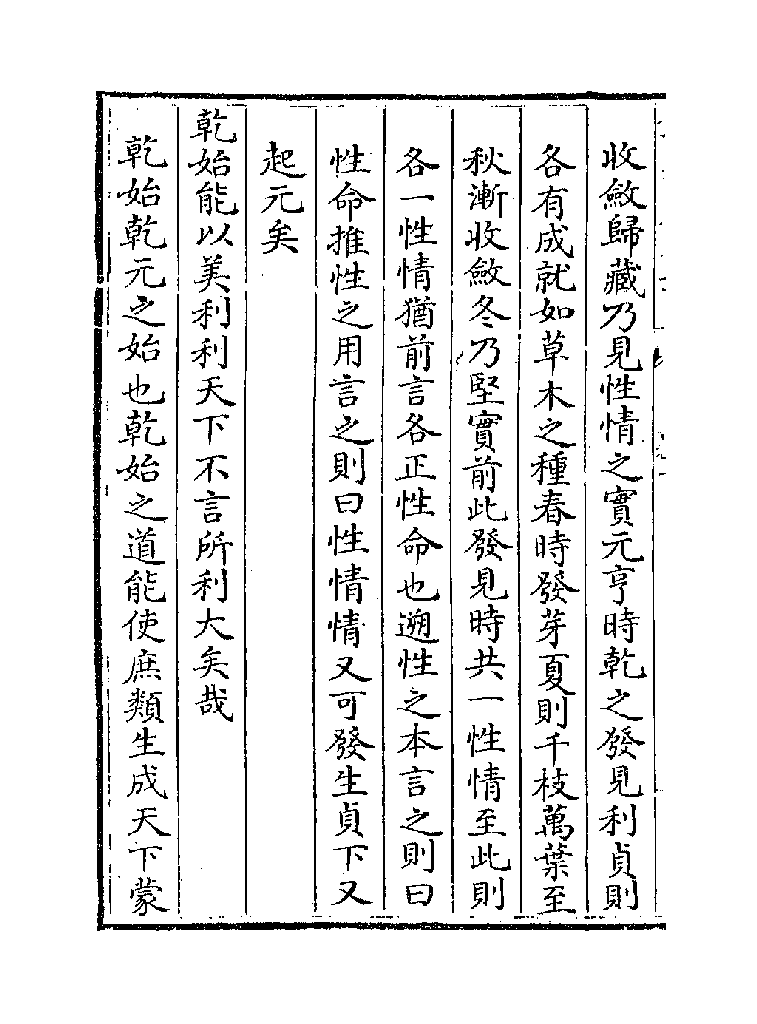 收斂歸藏乃見性情之實元亨時乾之發見利貞則
各有成就如草木之種春時發芽夏則千枝萬葉至
秋漸收斂冬乃堅實前此發見時共一性情至此則
各一性情猶前言各正性命也遡性之本言之則曰
性命推性之用言之則曰性情情又可發生貞下又
起元矣
乾始能以美利利天下不言所利大矣哉
乾始乾元之始也乾始之道能使庶類生成天下蒙